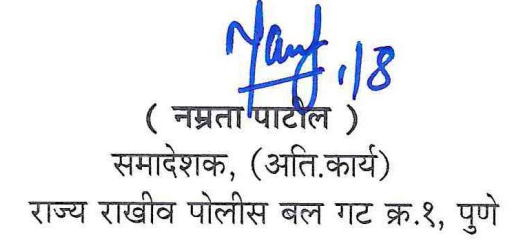 1/8
( नम्रता पाटील )
समादेशक, (अति.कार्य)
राज्य राखीव पोलीस बल गट क्र.१, पुणे